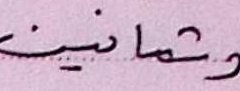 وثمانين